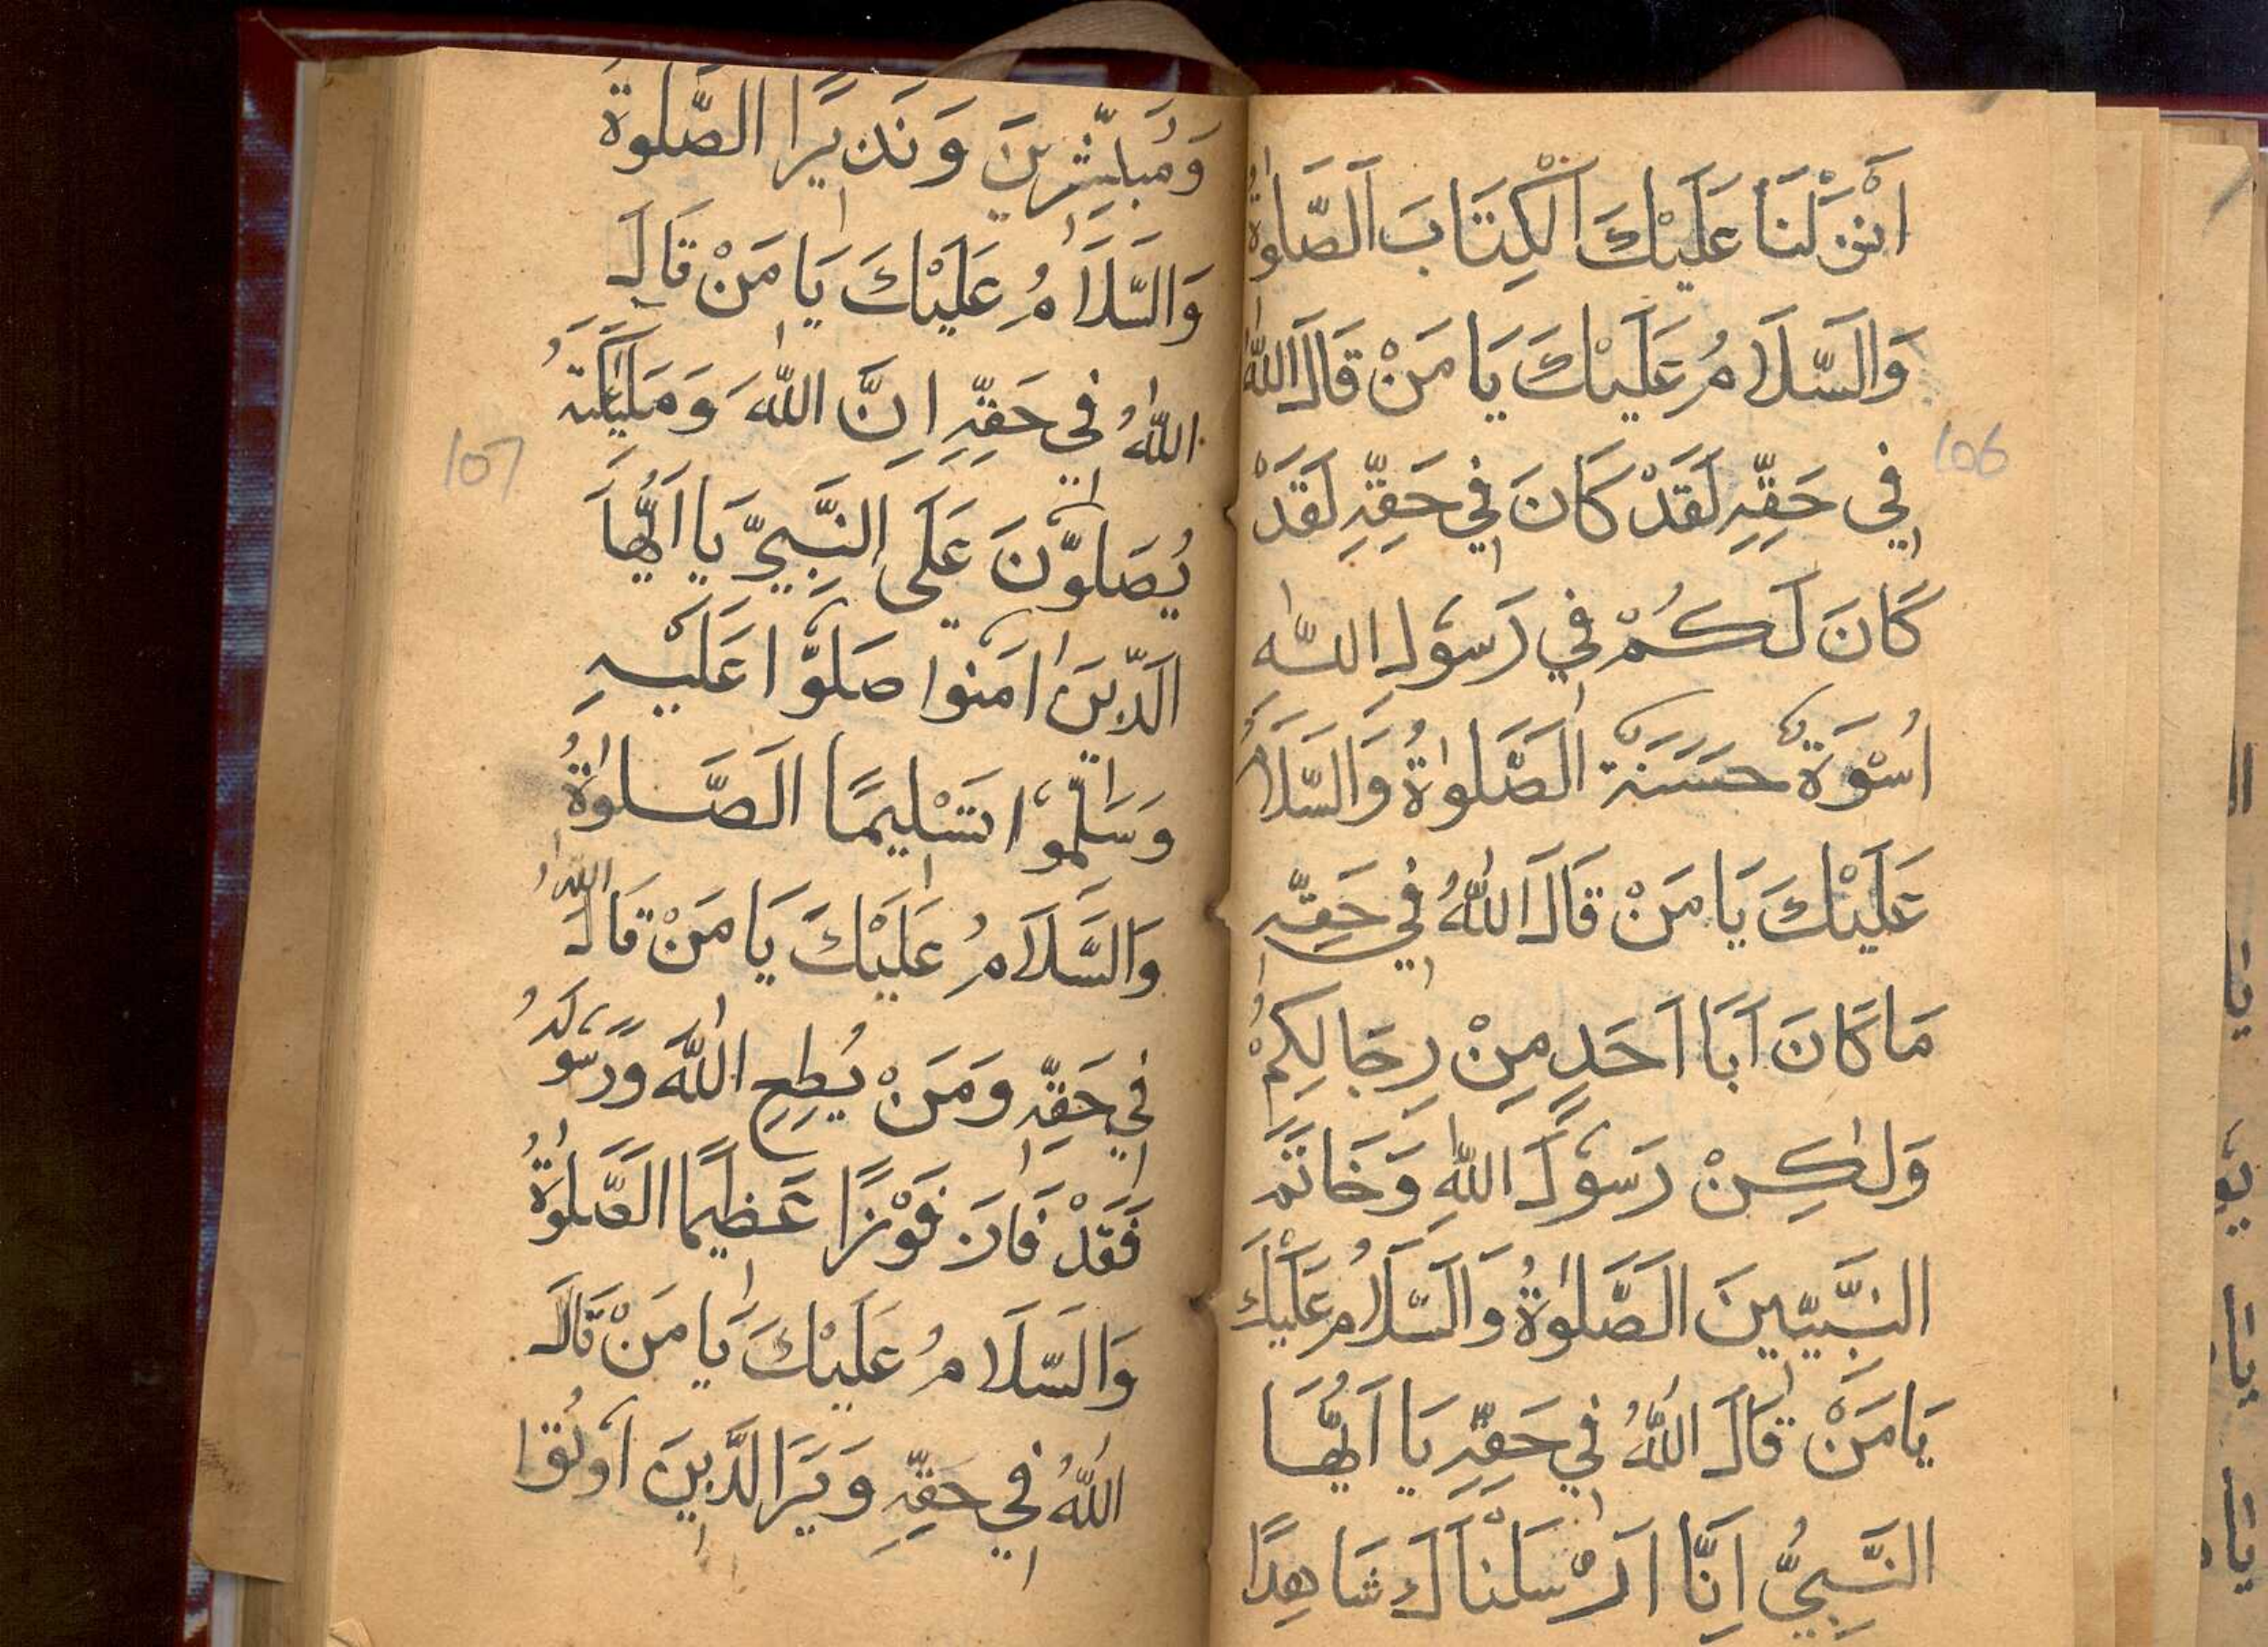 اَنْزَلْنَا عَلَيْكَ الْكِتَابَ اَلصَّلٰوةُ
وَالسَّلَامُ عَلَيْكَ يَا مَنْ قَالَ اللّٰهُ
106
فِي حَقِّهِ لَقَدْ كَانَ فِي حَقِّهِ لَقَدْ
كَانَ لَكُمْ فِي رَسُولِ اللّٰهِ
اُسْوَةٌ حَسَنَةٌ اَلصَّلٰوةُ وَالسَّلَامُ
عَلَيْكَ يَا مَنْ قَالَ اللّٰهُ فِي حَقِّهِ
مَا كَانَ اَبَا اَحَدٍ مِنْ رِجَالِكُمْ
وَلٰكِنْ رَسُولَ اللّٰهِ وَخَاتَمَ
النَّبِيِّينَ اَلصَّلٰوةُ وَالسَّلَامُ عَلَيْكَ
يَا مَنْ قَالَ اللّٰهُ فِي حَقِّهِ يَا اَيُّهَا
النَّبِيُّ اِنَّا اَرْسَلْنَاكَ شَاهِدًا
وَمُبَشِّرِينَ وَنَذِيرًا الصَّلٰوةُ
وَالسَّلَامُ عَلَيْكَ يَا مَنْ قَالَ
اللّٰهُ فِي حَقِّهِ اِنَّ اللّٰهَ وَمَلٰئِكَتَهُ
107
يُصَلُّونَ عَلَى النَّبِيِّ يَا اَيُّهَا
الَّذِينَ اٰمَنُوا صَلُّوا عَلَيْهِ
وَسَلِّمُوا تَسْلِيمًا اَلصَّلٰوةُ
وَالسَّلَامُ عَلَيْكَ يَا مَنْ قَالَ اللّٰهُ
فِي حَقِّهِ وَمَنْ يُطِعِ اللّٰهَ وَرَسُولَهُ
فَقَدْ فَانَ فَوْزًا عَظِيمًا الصَّلٰوةُ
وَالسَّلَامُ عَلَيْكَ يَا مَنْ قَالَ
اللّٰهُ فِي حَقِّهِ وَيَرَا الَّذِينَ اُوتُوا